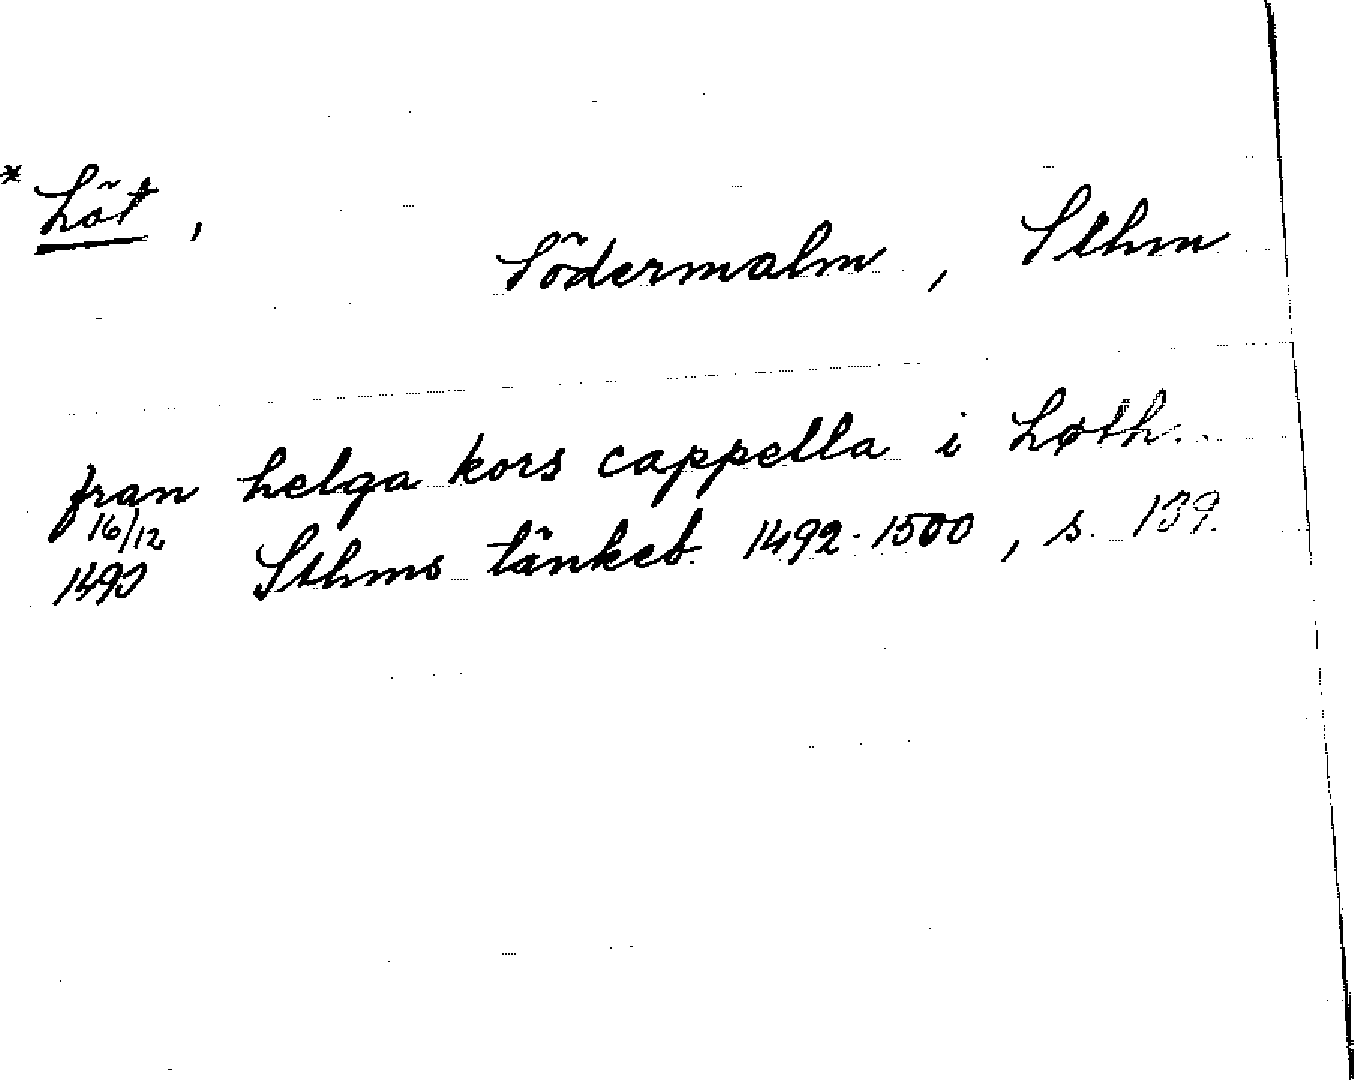 * Löt,
Södermalm, Sthm
fran helga kors cappella i Løth..
16/12
1493 Sthms tänkeb. 1492-1500, s. 139.